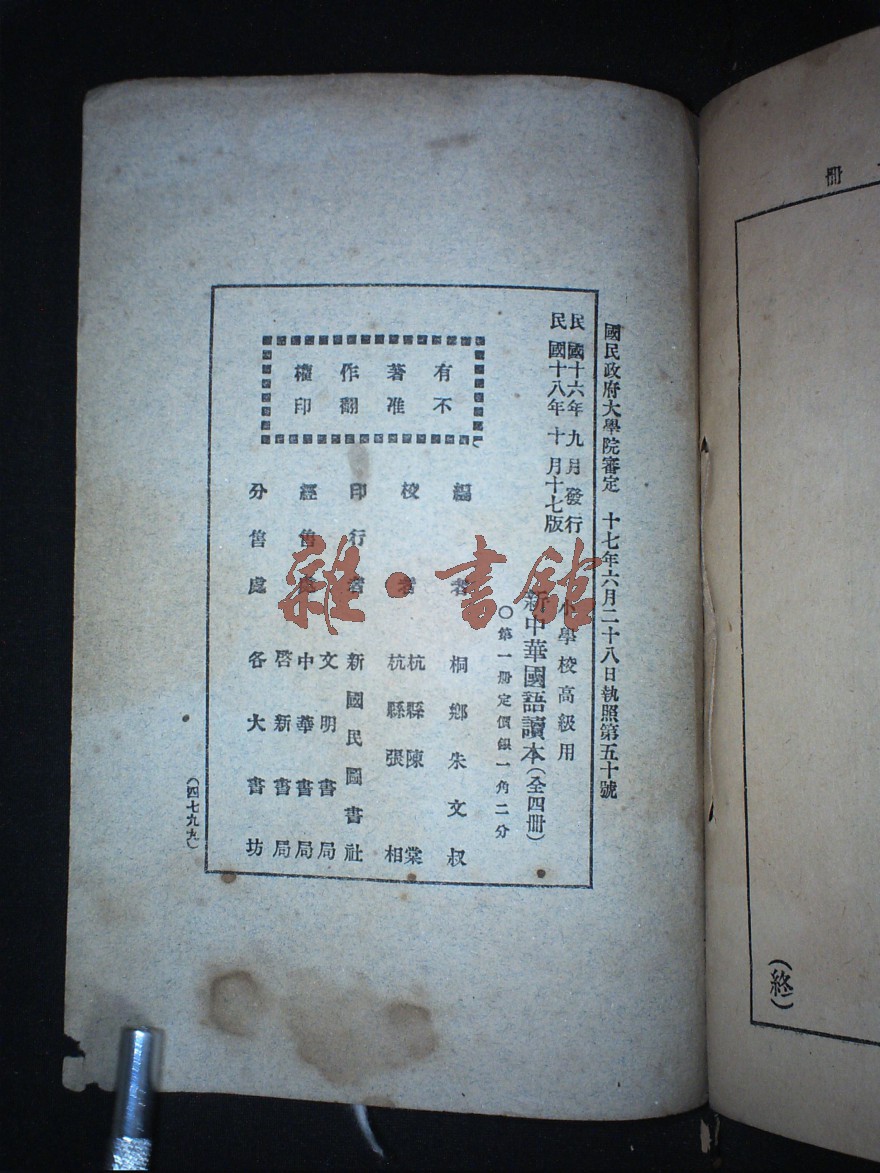 冊
(終)
國民政府大學院審定　十七年六月二十八日執照第五十號
民國十六年九月發行
民國十八年十月十七版
小學校高級用
新中華國語讀本(全四冊)
○第一册定價銀一角二分
有不
著准
作翻
權印
編者　桐鄉朱文叔
校者　杭縣陳棠
杭縣張相
印行者　新國民圖書社
經售處　文明書局
中華書局
啓新書局
分售處　各大書坊
(四七九九)
雜·書館